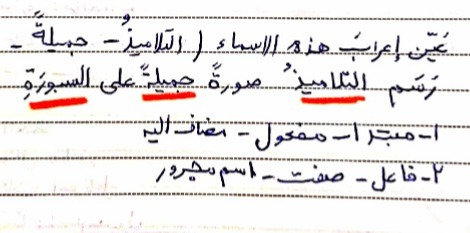 عَيّن إعرابَ هذه الاسماء ( التلاميذُ - جميلةً -
رَسَم التلاميذُ صورةً جميلةً على السبورَةِ
١- مبتدا - مفعول - مضاف اليه
٢- فاعل - صفت - اسم مجرور